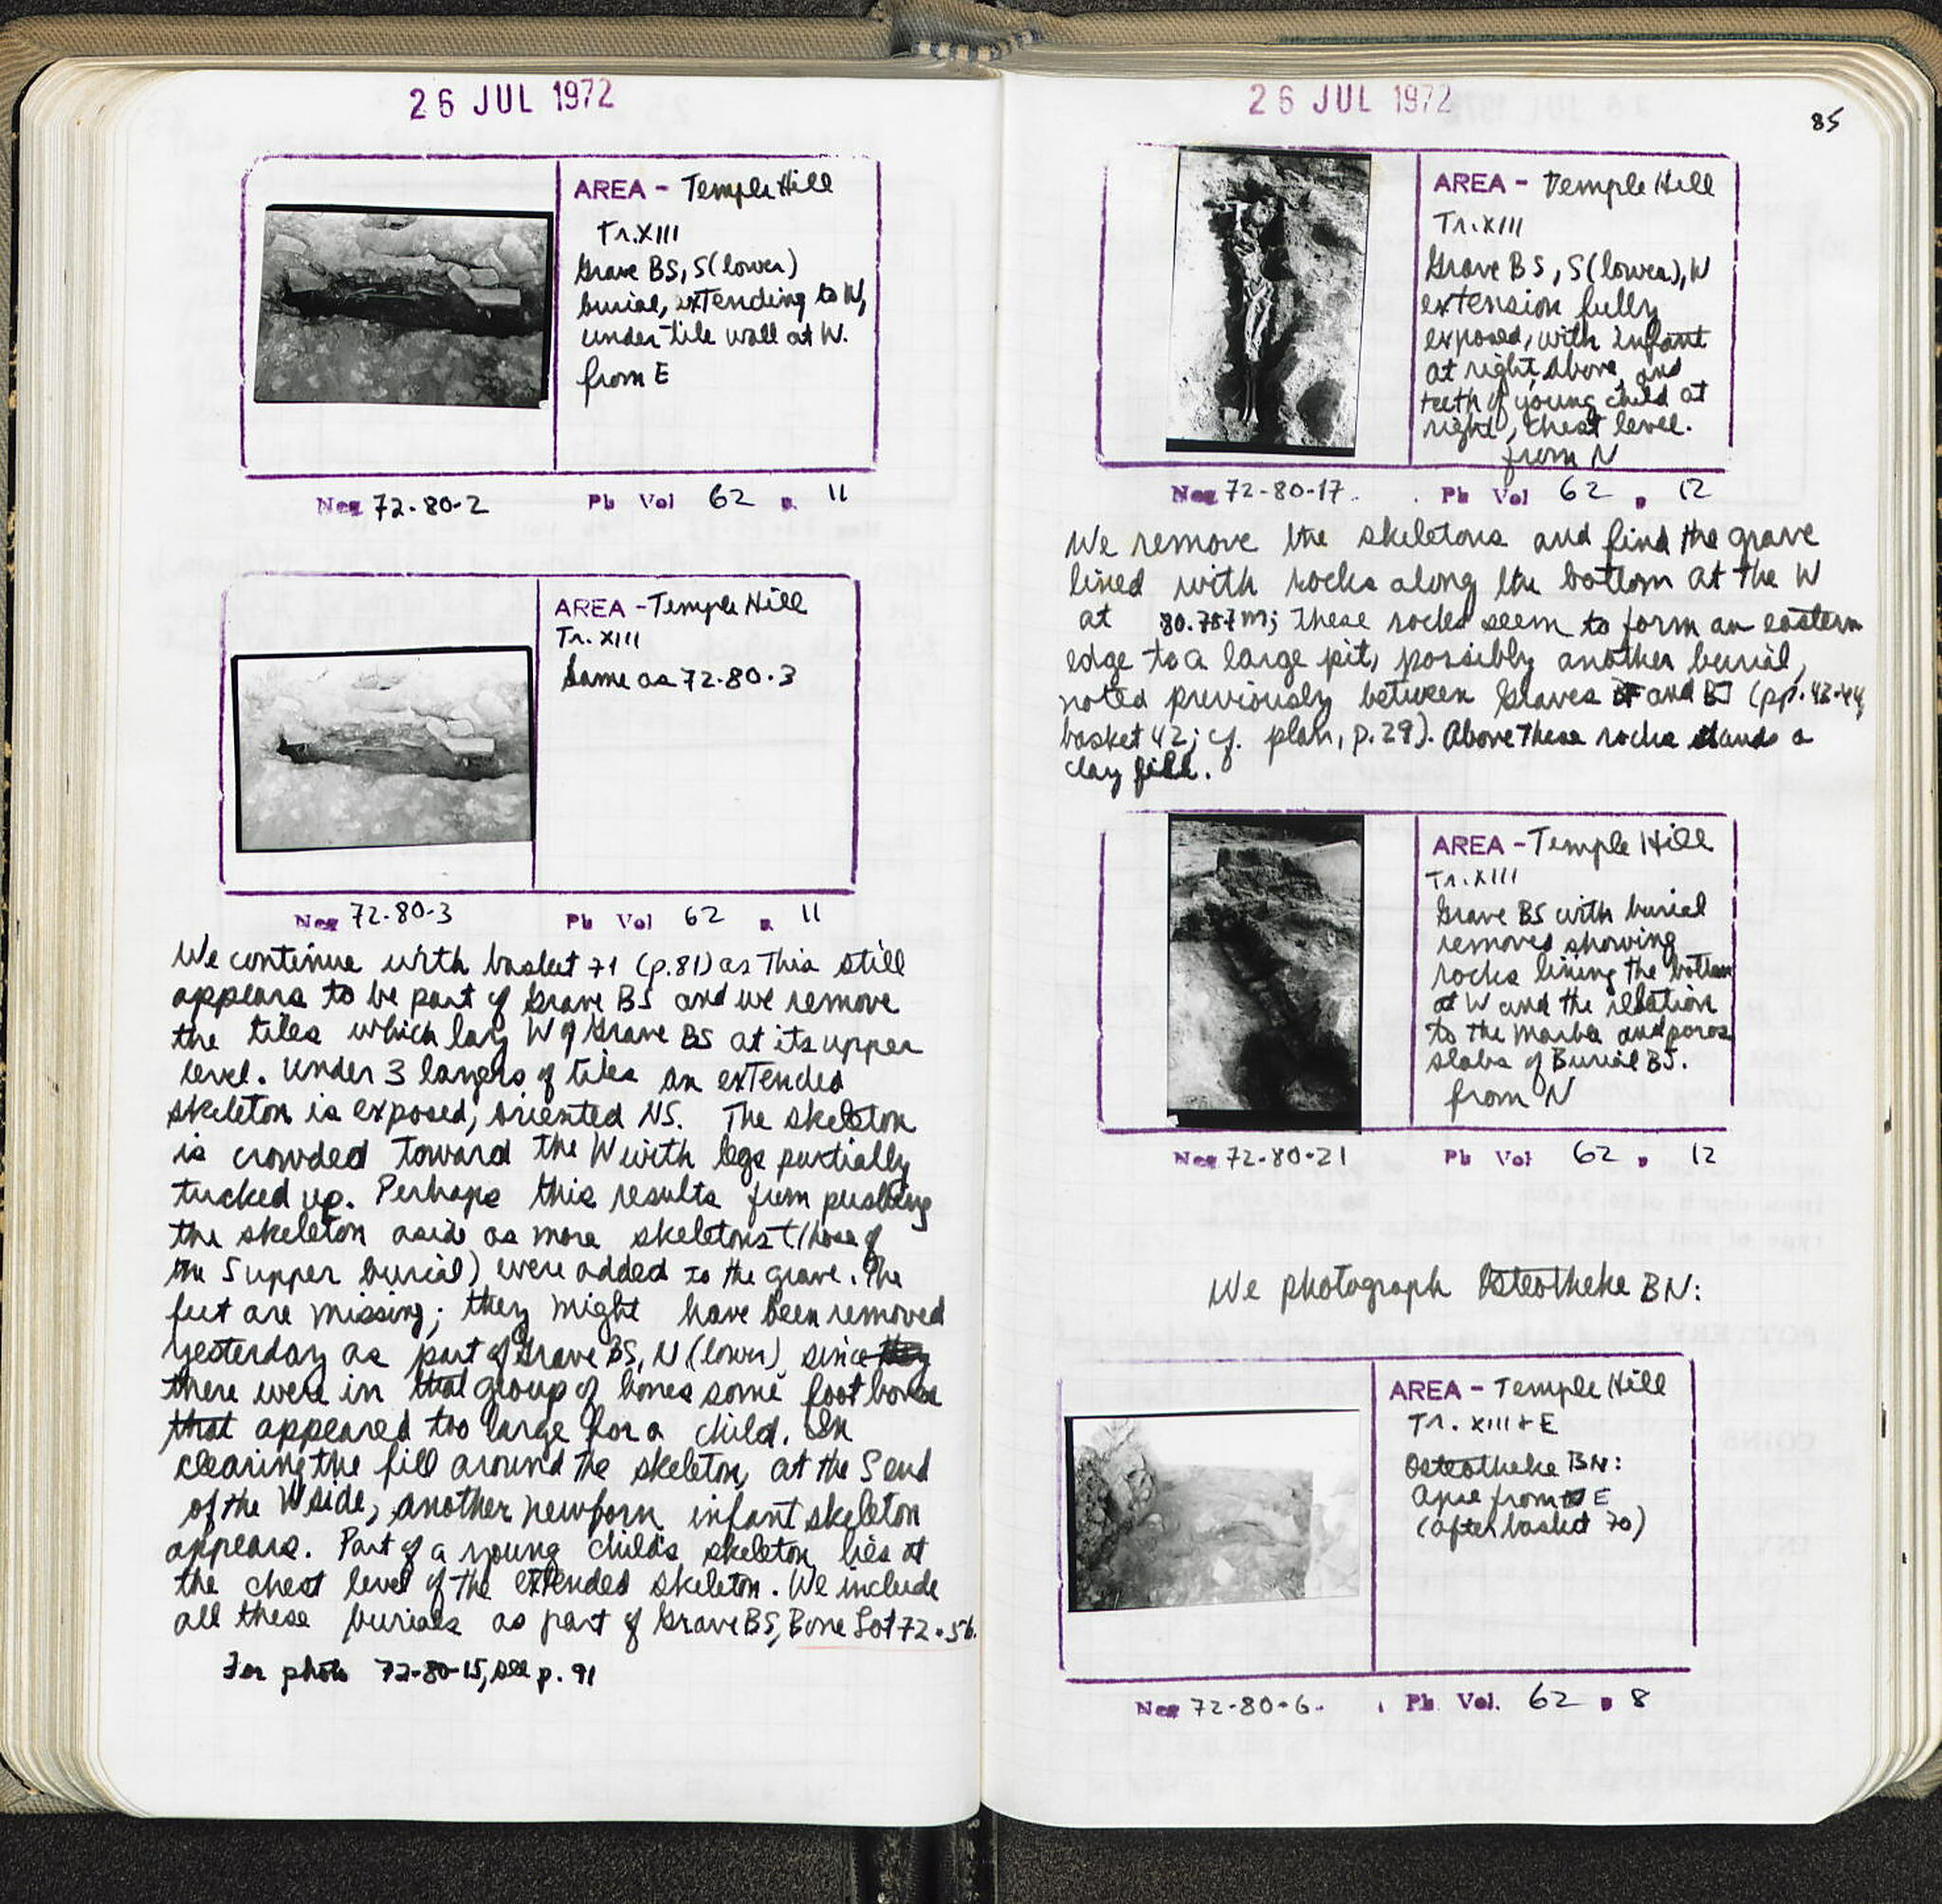 26 JUL 1972
AREA - Temple Hill
Tr. XIII
Grave BS, S (lower)
burial, extending to W,
under tile wall at W.
from E
Neg 72-80-2 Ph Vol 62 p. 11
AREA - Temple Hill
Tr. XIII
Same as 72-80-3
Neg 72-80-3 Ph Vol 62 p. 11
We continue with basket 71 (p.81) as this still
appears to be part of Grave BS and we remove
the tiles which lay W of Grave BS at its upper
level. Under 3 layers of tiles an extended
skeleton is exposed, oriented NS. The skeleton
is crowded toward the W with legs partially
tucked up. Perhaps this results from pushing
the skeleton aside as more skeletons (those of
the S upper burial) were added to the grave. The
feet are missing; they might have been removed
yesterday as part of Grave BS, N (lower) since they
there were in that group of bones some foot bones
that appeared too large for a child. In
clearing the fill around the skeleton, at the S end
of the W side, another newborn infant skeleton
appears. Part of a young child's skeleton lies at
the chest level of the extended skeleton. We include
all these burials as part of Grave BS, Bone Lot 72-56.
For photo 72-80-15, see p. 91
26 JUL 1972
85
AREA - Temple Hill
Tr. XIII
Grave BS, S (lower), W
extension fully
exposed, with infant
at right, above, and
teeth of young child at
right, chest level.
from N
Neg 72-80-17. Ph Vol 62 p. 12
We remove the skeletons and find the grave
lined with rocks along the bottom at the W
at 80.787m; These rocks seem to form an eastern
edge to a large pit, possibly another burial,
noted previously between Graves BF and BJ (pp. 43-44,
basket 42; cf. plan, p. 29). Above these rocks stands a
clay fill.
AREA - Temple Hill
Tr. XIII
Grave BS with burial
removed showing
rocks lining the bottom
at W and the relation
to the marble and poros
slabs of Burial BJ.
from N
Neg 72-80-21 Ph Vol 62 p. 12
We photograph Osteotheke BN:
AREA - Temple Hill
Tr. XIII + E
Osteotheke BN:
Apse from E
(after basket 70)
Neg 72-80-6. Ph Vol. 62 p 8